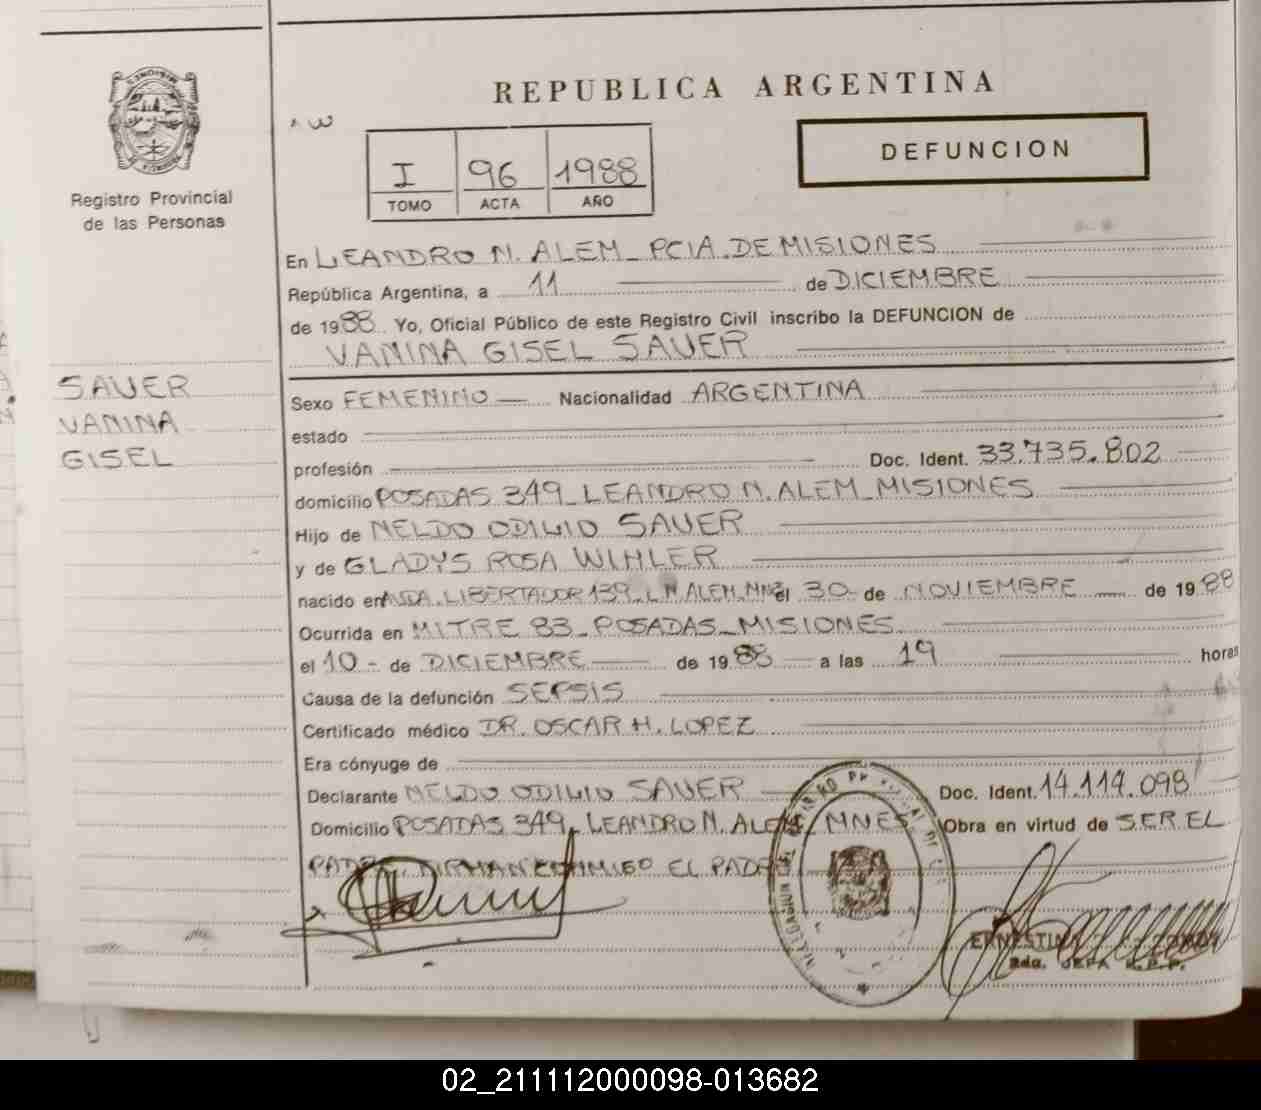 REPUBLICA ARGENTINA
DEFUNCION
Registro Provincial
de las Personas
I 96 1988
TOMO ACTA AÑO
En LEANDRO N. ALEM_PCIA. DE MISIONES
República Argentina, a 11 de DICIEMBRE
de 1988 Yo, Oficial Público de este Registro Civil inscribo la DEFUNCION de
VANINA GISEL SAUER
SAUER
VANINA
GISEL
Sexo FEMENINO Nacionalidad ARGENTINA
estado
profesión Doc. Ident. 33.735.802
domicilio POSADAS 349_LEANDRO N. ALEM_MISIONES
Hijo de NELDO ODILIO SAUER
y de GLADYS ROSA WINLER
nacido en AVDA. LIBERTADOR 139_L N ALEM. MNES el 30- de NOVIEMBRE de 1988
Ocurrida en MITRE 83_POSADAS_MISIONES
el 10- de DICIEMBRE de 1988 a las 19 horas
Causa de la defunción SEPSIS
Certificado médico DR. OSCAR H. LOPEZ
Era cónyuge de
Declarante NELDO ODILIO SAUER Doc. Ident. 14.114.098
Domicilio POSADAS 349_LEANDRO N. ALEM_MNES Obra en virtud de SER EL
PADRE. FIRMAN CONMIGO EL PADRE
02_211112000098-013682